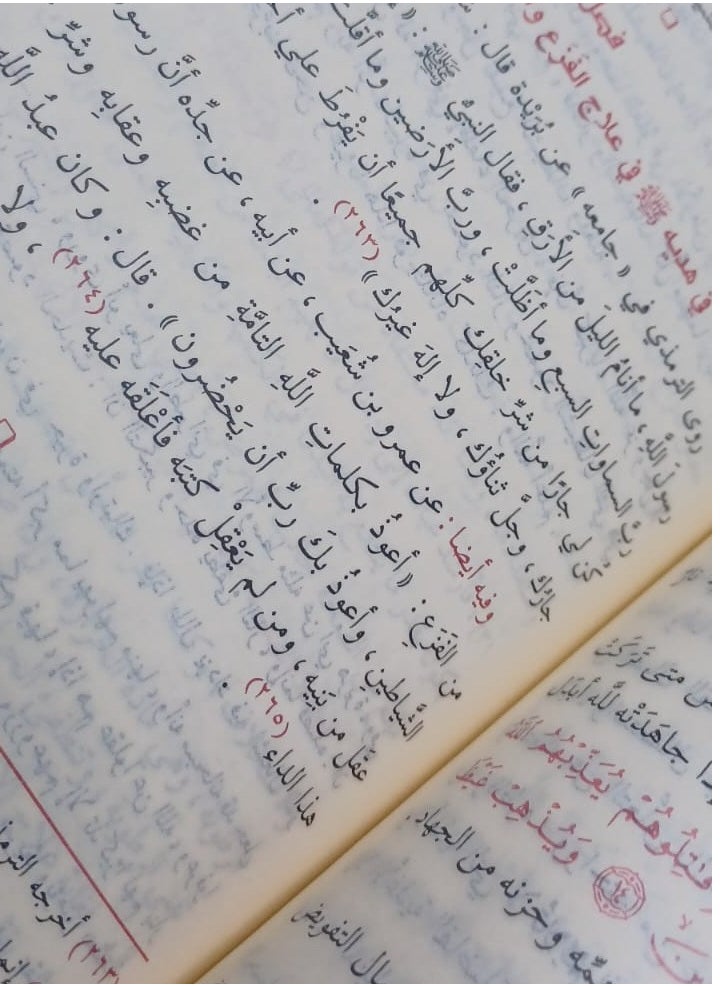 فصل
في هديه ﷺ في علاج الفَزَع و
روى الترمذي في «جامعه» عن بُرَيْدة قال :
رسولَ اللَّهِ ، ما أنامُ الليلَ مِن الأَرَقِ ، فقال النبيُّ ﷺ : «
ربَّ السماواتِ السبعِ وما أَظَلَّتْ ، وربَّ الأَرَضين وما أَقَلَّت
كُنْ لي جارًا من شرِّ خلقِك كلِّهم جميعًا أن يَفْرُطَ علي أح
جارُك ، وجلَّ ثناؤُك ، ولا إلهَ غيرُك» (٢٦٣) .
وفيه أيضا : عن عمرو بن شُعَيب ، عن أبيه ، عن جدِّه أنَّ رسو
من الفَزَعِ : «أعوذُ بكلماتِ اللَّهِ التامَّةِ من غضبِه وعقابِه وشرِّ
الشَّياطينِ ، وأعوذُ بكَ ربِّ أن يَحْضُرون» . قال : وكان عبدُ اللَّه
عقَل من بَنِيه ، ومن لم يَعْقِلْ كتبَه فأَعْلَقَه عليه (٢٦٤) ، ولا
هذا الداء (٢٦٥) .
(٢٦٣) أخرجه الترمذ
متى تركتْ
جاهَدَتْه للَّه أبدَل
قَٰتِلُوهُمْ يُعَذِّبْهُمُ ٱللَّهُ
١٤ وَيُذْهِبْ غَيْظَ
همِّه وحزنه من الجهاد .
التفويض